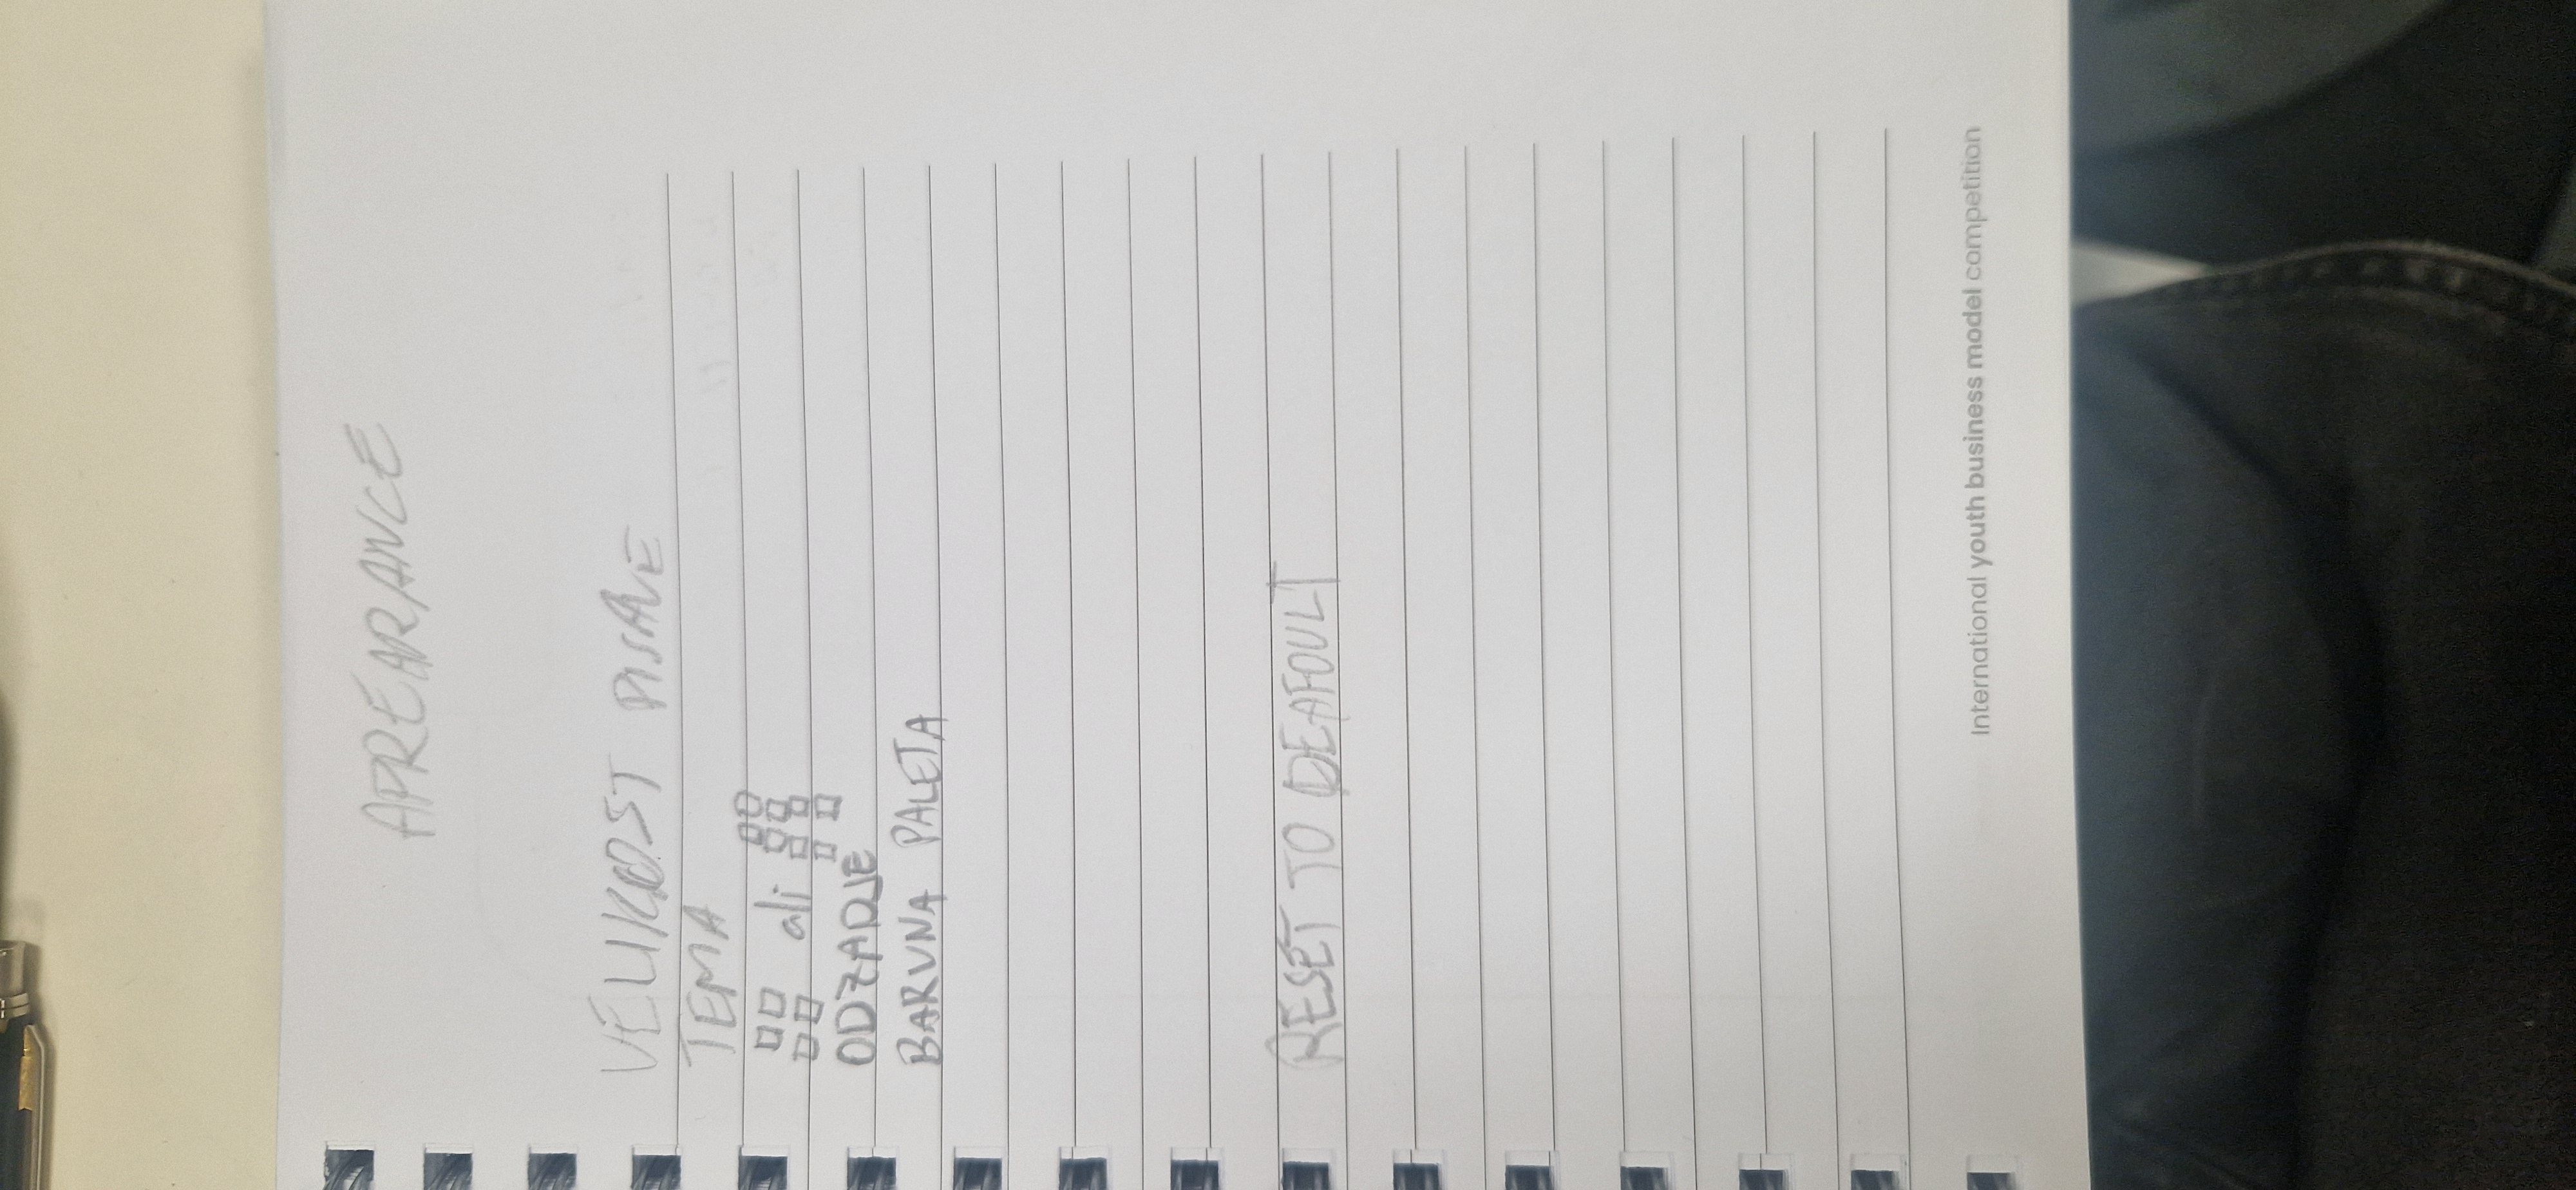 APREARANCE
VELIKOST PISAVE
TEMA
ali
ODZADJE
BARVNA PALETA
RESET TO DEAFOULT
International youth business model competition